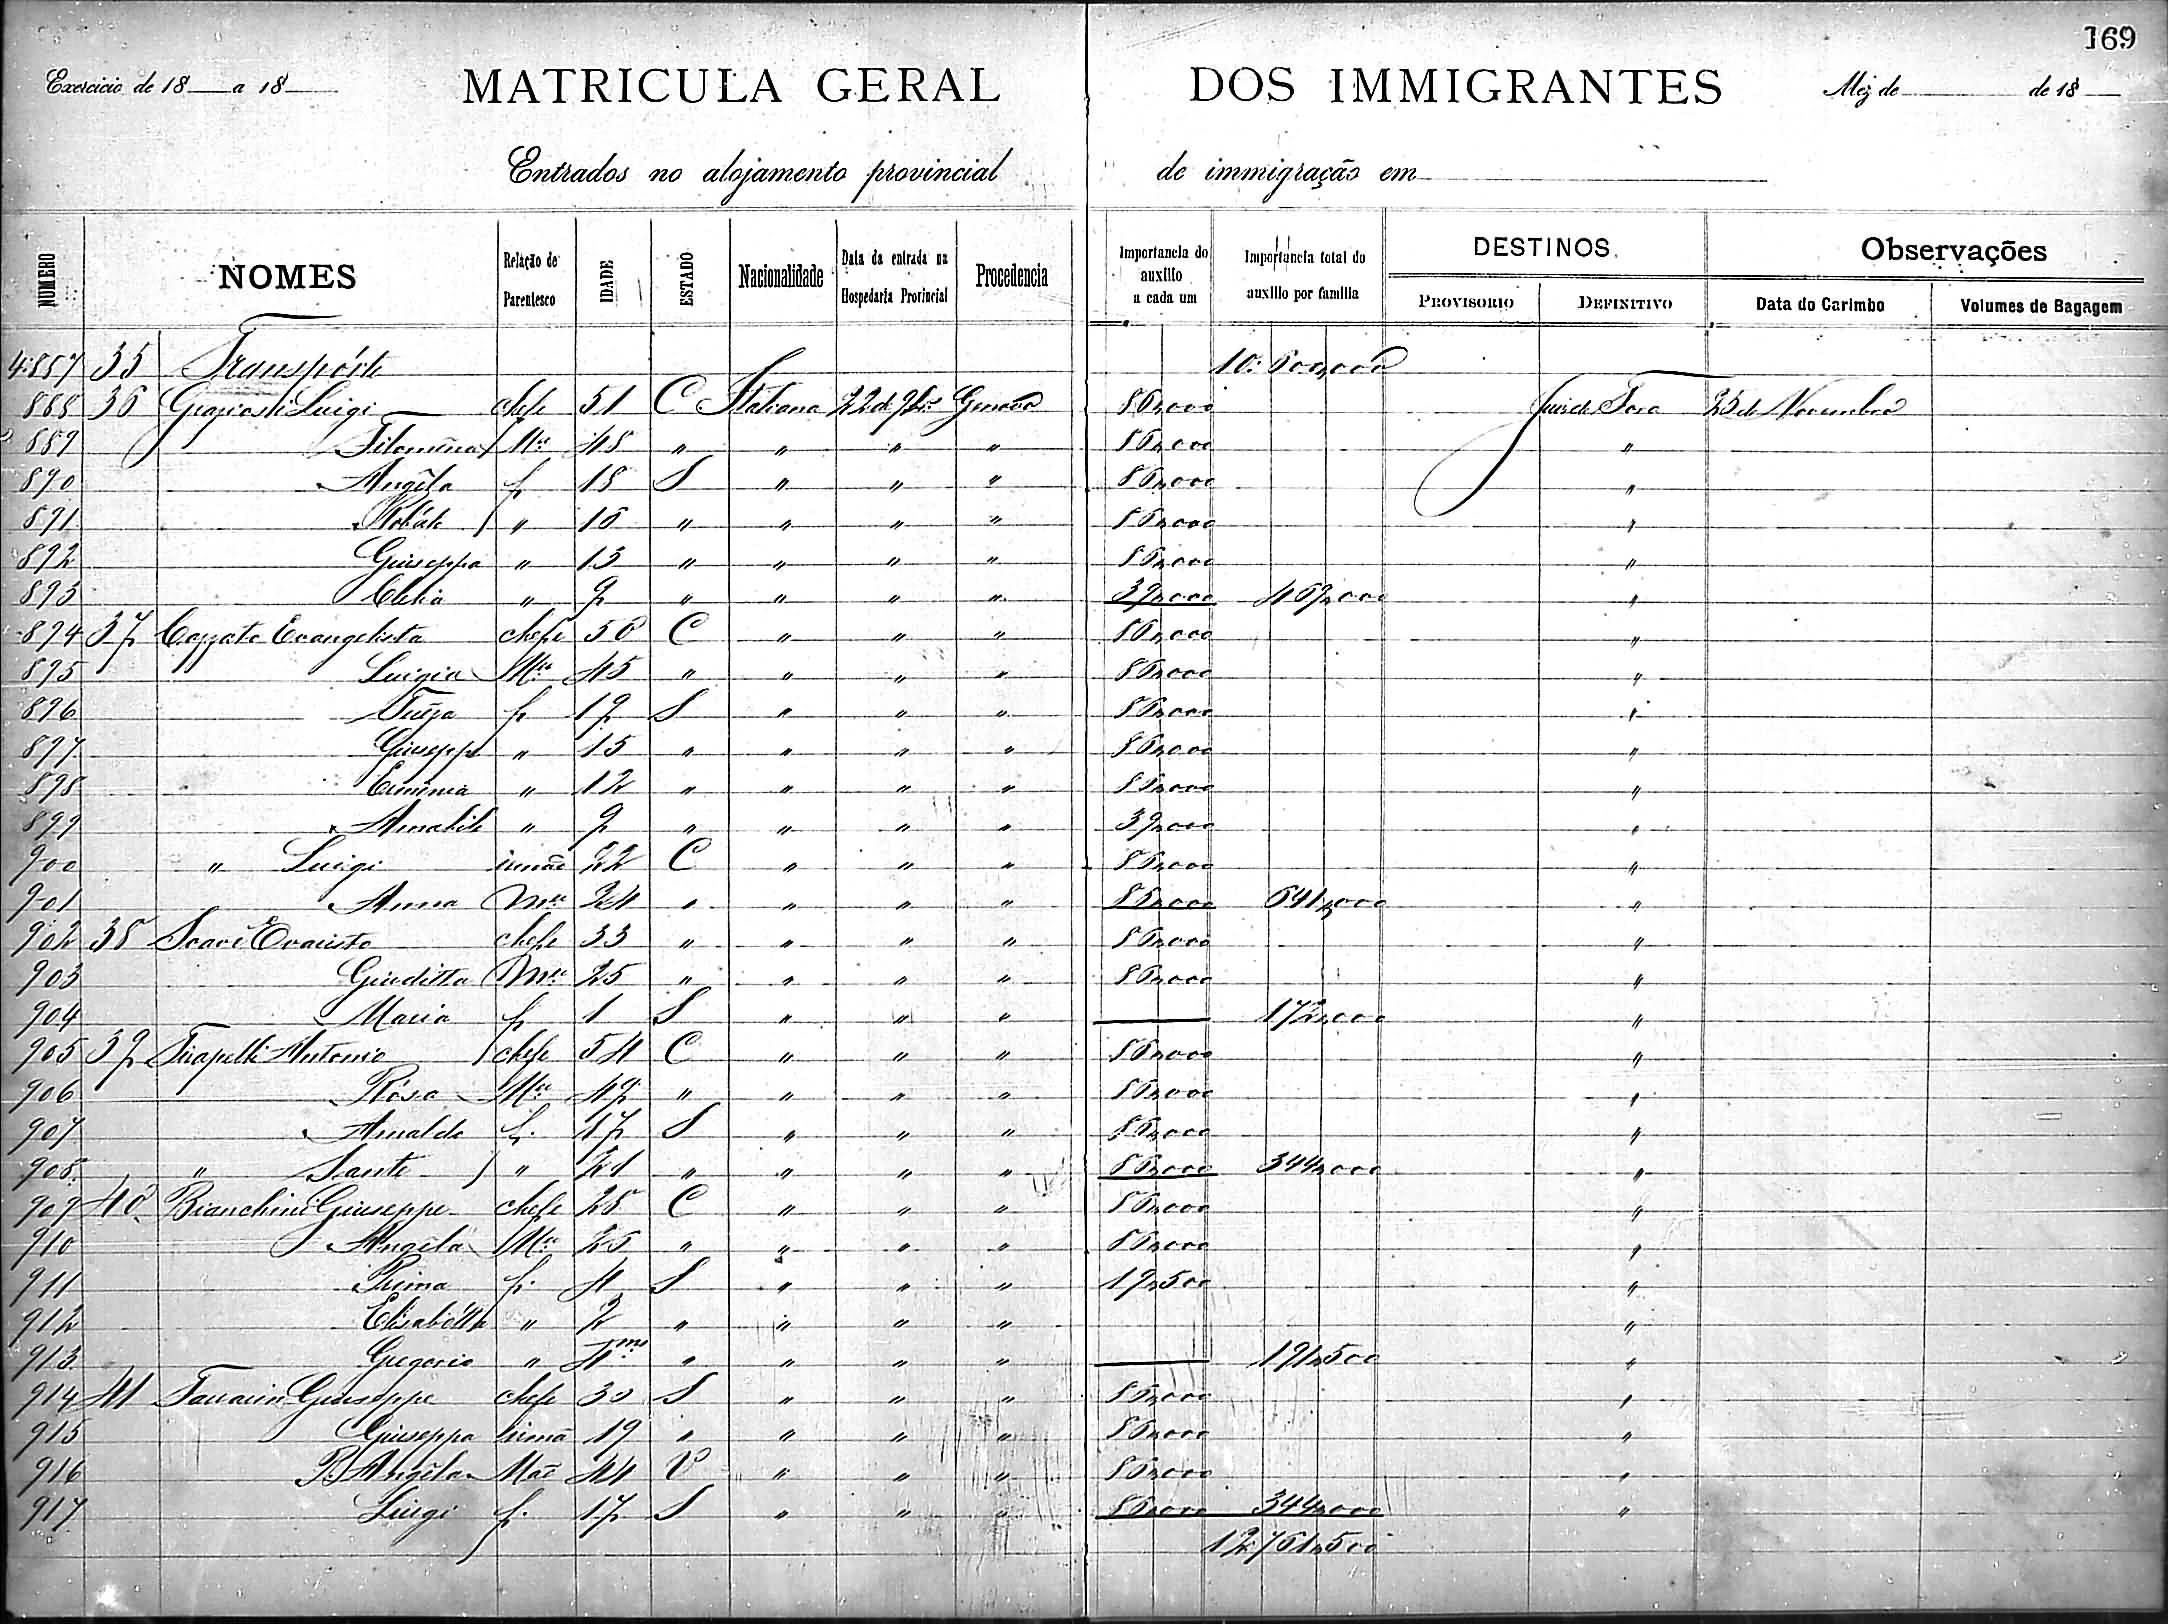 169
Exercicio de 18 a 18 MATRICULA GERAL DOS IMMIGRANTES Mez de de 18
Entrados no alojamento provincial de immigração em
NUMERO NOMES Relação de Parentesco IDADE ESTADO Nacionalidade Data da entrada na Hospedaria Provincial Procedencia Importancia do auxilio a cada um Importancia total do auxilio por familia DESTINOS. PROVISORIO DEFINITIVO Observações Data do Carimbo Volumes de Bagagem
4:887 35 Transpórte 10:600,000
888 36 Luigi chefe 51 C Italiana 22 de 9bro Genova 86,000 Juiz de Fora 25 de Novembro
889 Filomena Mer 48 " " " " 86,000 "
890 Angela f 18 S " " " 86,000 "
891 " 16 " " " " 86,000 "
892 Giuseppa " 13 " " " " 86,000 "
893 Clelia " 9 " " " " 39,000 469,000 "
894 37 Cazzato Evangelista chefe 56 C " " " 86,000 "
895 Luigia Mer 45 " " " " 86,000 "
896 f 19 S " " " 86,000 "
897 Giuseppe " 15 " " " " 86,000 "
898 Erminia " 12 " " " " 86,000 "
899 Amabile " 9 " " " " 39,000 "
900 " Luigi irmão 22 C " " " 86,000 "
901 Anna Mer 24 " " " " 86,000 641,000 "
902 38 Soave Evaristo chefe 33 " " " " 86,000 "
903 Giuditta Mer 25 " " " " 86,000 "
904 Maria f 1 S " " " 172,000 "
905 39 Tirapelli Antonio chefe 54 C " " " 86,000 "
906 Rosa Mer 49 " " " " 86,000 "
907 Arnaldo f. 17 S " " " 86,000 "
908 " Sante " 21 " " " " 86,000 344,000 "
909 40 Bianchini Giuseppe chefe 28 C " " " 86,000 "
910 Angela Mer 25 " " " " 86,000 "
911 Prima f. 4 S " " " 19,500 "
912 Elisabetta " 2 " " " " "
913 Gregorio " 4 ms " " " " 191,500 "
914 41 Giuseppe chefe 30 S " " " 86,000 "
915 Giuseppa irmã 19 " " " " 86,000 "
916 B. Angela Mãe 44 V " " " 86,000 "
917 Luigi f. 17 S " " " 86,000 344,000 "
12:761,500